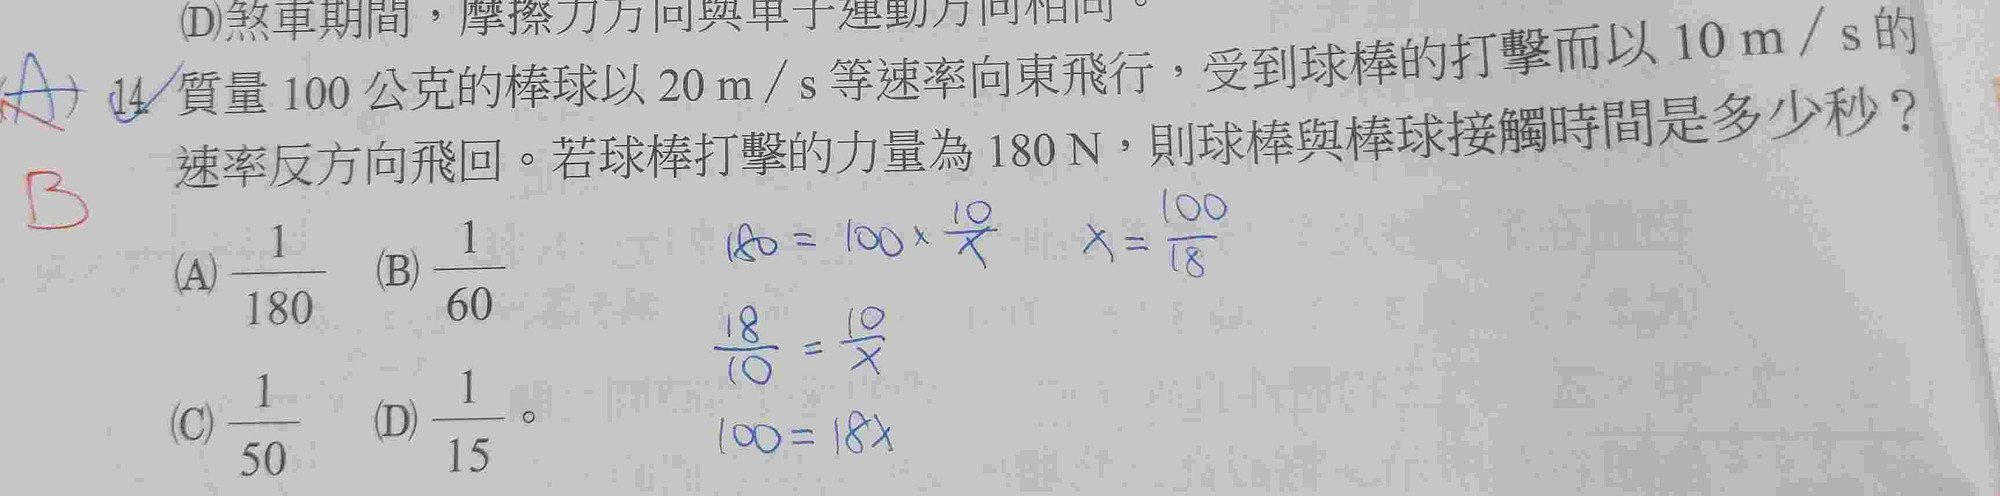 (D)煞車期間，摩擦力方向與車子運動方向相同。
(A) 14 質量 100 公克的棒球以 20 m / s 等速率向東飛行，受到球棒的打擊而以 10 m / s 的
速率反方向飛回。若球棒打擊的力量為 180 N，則球棒與棒球接觸時間是多少秒？
B
(A) 1/180 (B) 1/60
180 = 100 × 10/x x = 100/18
18/10 = 10/x
(C) 1/50 (D) 1/15 。
100 = 18x